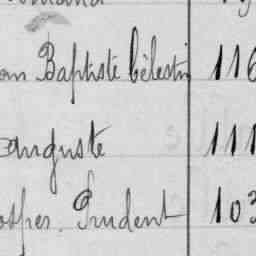 Baptiste Célestin 116
auguste 111
Prudent 103